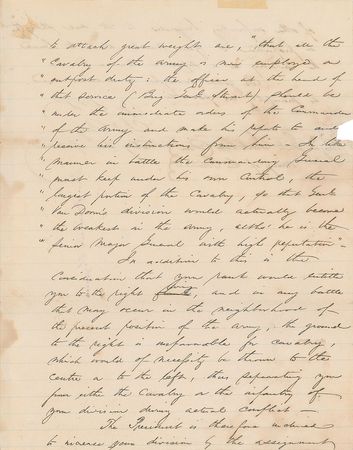 to attach great weight are, "that all the
" Cavalry of the Army is now employed on
" outpost duty: the officer at the head of
" that service (Brig Genl Stuart) should be
" under the immediate orders of the Commander
" of the Army and make his reports to and
" receive his instructions from him - In like
" manner in battle the Commanding General
" must keep under his own control, the
" largest portion of the Cavalry, so that Genl
" Van Dorn's division would actually become
" the weakest in the Army, altho' he is the
" Senior Major General with high reputation"-
In addition to this is the
consideration that your rank would entitle
you to the right wing, and in any battle
that may occur in the neighborhood of
the present position of the Army, the ground
to the right is unfavorable for cavalry,
which would of necessity be thrown to the
centre or to the left, thus separating you
from either the Cavalry or the infantry of
your division during actual conflict -
The President is therefore inclined
to increase your division by the assignment